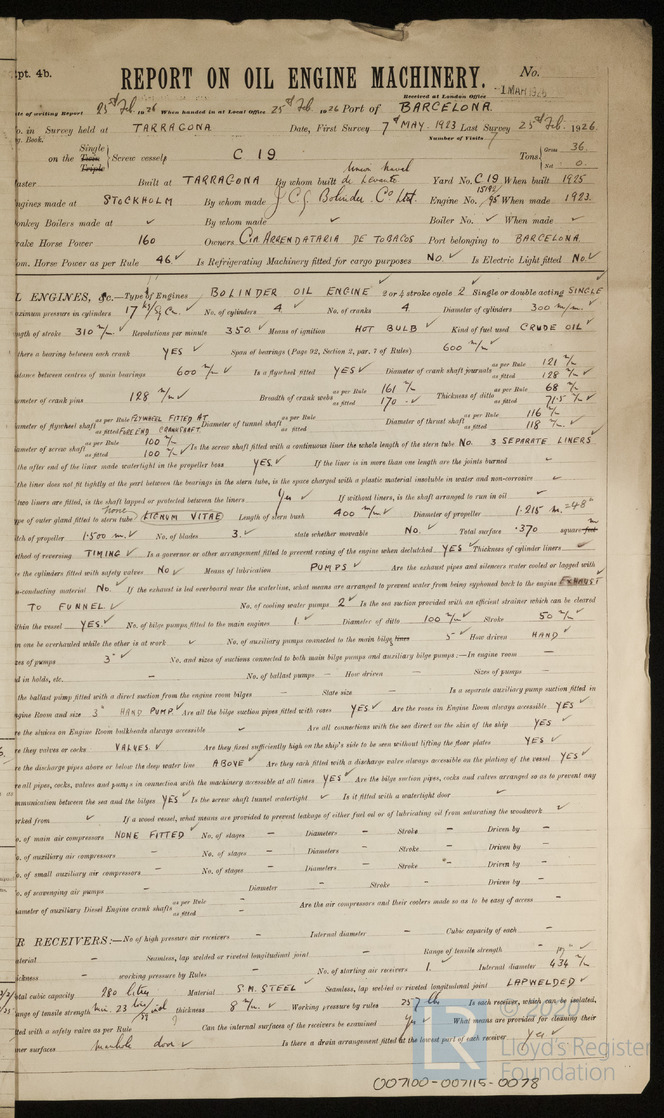 pt. 4b.
REPORT ON OIL ENGINE MACHINERY.
No.
Received at London Office
1 MAR 1926
of writing Report 25th Feb. 1926 When handed in at Local Office 25th Feb 1926 Port of BARCELONA.
o. in Survey held at TARRAGONA Date, First Survey 7th MAY. 1923 Last Survey 25th Feb. 1926.
g. Book. Number of Visits
on the Single Twin Triple Screw vessel C 19 Tons Gross 36. Net 0.
aster Built at TARRAGONA By whom built Union Naval de Levante Yard No. C 19 When built 1925
ngines made at STOCKHOLM By whom made J. C. G. Bolinder Co Ltd. Engine No. When made 1923
onkey Boilers made at ✓ By whom made ✓ Boiler No. ✓ When made ✓
rake Horse Power 160 Owners Cia ARRENDATARIA DE TOBACOS Port belonging to BARCELONA
om. Horse Power as per Rule 46 ✓ Is Refrigerating Machinery fitted for cargo purposes NO. ✓ Is Electric Light fitted No. ✓
L ENGINES, &c.—Type of Engines BOLINDER OIL ENGINE 2 or 4 stroke cycle 2 Single or double acting SINGLE
aximum pressure in cylinders 17 No. of cylinders 4 No. of cranks 4 Diameter of cylinders 300 m/m.
ngth of stroke 310 m/m Revolutions per minute 350. Means of ignition HOT BULB ✓ Kind of fuel used CRUDE OIL ✓
there a bearing between each crank YES ✓ Span of bearings (Page 92, Section 2, par. 7 of Rules) 600 m/m ✓
istance between centres of main bearings 600 m/m ✓ Is a flywheel fitted YES ✓ Diameter of crank shaft journals as per Rule 121 m/m as fitted 128 m/m ✓
iameter of crank pins 128 m/m ✓ Breadth of crank webs as per Rule 161 m/m as fitted 170 ✓ Thickness of ditto as per Rule 68 m/m as fitted 71.5 m/m ✓
iameter of flywheel shaft as per Rule FLYWHEEL FITTED AT as fitted FORE END CRANKSHAFT Diameter of tunnel shaft as per Rule as fitted Diameter of thrust shaft as per Rule 116 m/m as fitted 118 m/m ✓
iameter of screw shaft as per Rule 100 m/m as fitted 100 m/m ✓ Is the screw shaft fitted with a continuous liner the whole length of the stern tube NO. 3 SEPARATE LINERS
the after end of the liner made watertight in the propeller boss YES. ✓ If the liner is in more than one length are the joints burned ✓
the liner does not fit tightly at the part between the bearings in the stern tube, is the space charged with a plastic material insoluble in water and non-corrosive ✓
two liners are fitted, is the shaft lapped or protected between the liners Yes ✓ If without liners, is the shaft arranged to run in oil ✓
ype of outer gland fitted to stern tube none LIGNUM VITAE Length of stern bush 400 m/m ✓ Diameter of propeller 1.215 m. = 48"
itch of propeller 1.500 m. ✓ No. of blades 3. ✓ state whether moveable NO. ✓ Total surface .370 square feet m
ethod of reversing TIMING ✓ Is a governor or other arrangement fitted to prevent racing of the engine when declutched YES ✓ Thickness of cylinder liners ✓
re the cylinders fitted with safety valves NO ✓ Means of lubrication PUMPS ✓ Are the exhaust pipes and silencers water cooled or lagged with
n-conducting material NO. ✓ If the exhaust is led overboard near the waterline, what means are arranged to prevent water from being syphoned back to the engine EXHAUST
TO FUNNEL. ✓ No. of cooling water pumps 2 ✓ Is the sea suction provided with an efficient strainer which can be cleared
ithin the vessel YES. ✓ No. of bilge pumps fitted to the main engines 1. ✓ Diameter of ditto 100 m/m ✓ Stroke 50 m/m ✓
n one be overhauled while the other is at work ✓ No. of auxiliary pumps connected to the main bilge lines 5 ✓ How driven HAND ✓
zes of pumps 3" ✓ No. and sizes of suctions connected to both main bilge pumps and auxiliary bilge pumps:—In engine room —
d in holds, etc. — No. of ballast pumps — How driven — Sizes of pumps —
the ballast pump fitted with a direct suction from the engine room bilges — State size — Is a separate auxiliary pump suction fitted in
ngine Room and size 3" HAND PUMP ✓ Are all the bilge suction pipes fitted with roses YES ✓ Are the roses in Engine Room always accessible YES ✓
re the sluices on Engine Room bulkheads always accessible ✓ Are all connections with the sea direct on the skin of the ship YES ✓
re they valves or cocks VALVES. ✓ Are they fixed sufficiently high on the ship's side to be seen without lifting the floor plates YES ✓
re the discharge pipes above or below the deep water line ABOVE ✓ Are they each fitted with a discharge valve always accessible on the plating of the vessel YES ✓
re all pipes, cocks, valves, and pumps in connection with the machinery accessible at all times YES ✓ Are the bilge suction pipes, cocks and valves arranged so as to prevent any
mmunication between the sea and the bilges YES ✓ Is the screw shaft tunnel watertight ✓ Is it fitted with a watertight door ✓
orked from ✓ If a wood vessel, what means are provided to prevent leakage of either fuel oil or of lubricating oil from saturating the woodwork ✓
o. of main air compressors NONE FITTED ✓ No. of stages — Diameters — Stroke — Driven by —
o. of auxiliary air compressors — No. of stages — Diameters — Stroke — Driven by —
o. of small auxiliary air compressors — No. of stages — Diameters — Stroke — Driven by —
o. of scavenging air pumps — Diameter — Stroke — Driven by —
iameter of auxiliary Diesel Engine crank shafts as per Rule — as fitted — Are the air compressors and their coolers made so as to be easy of access —
R RECEIVERS:—No of high pressure air receivers — Internal diameter — Cubic capacity of each —
aterial — Seamless, lap welded or riveted longitudinal joint — Range of tensile strength —
ickness — working pressure by Rules — No. of starting air receivers 1. Internal diameter 434 m/m
otal cubic capacity 280 litres Material S.M. STEEL ✓ Seamless, lap welded or riveted longitudinal joint LAPWELDED ✓
ange of tensile strength thickness 8 m/m. ✓ Working pressure by rules 257 Is each receiver, which can be isolated,
ted with a safety valve as per Rule Can the internal surfaces of the receivers be examined Yes ✓ What means are provided for cleaning their
ner surfaces Manhole door ✓ Is there a drain arrangement fitted at the lowest part of each receiver Yes ✓
© 2020
LR
Lloyd's Register
Foundation
007100-007115-0078